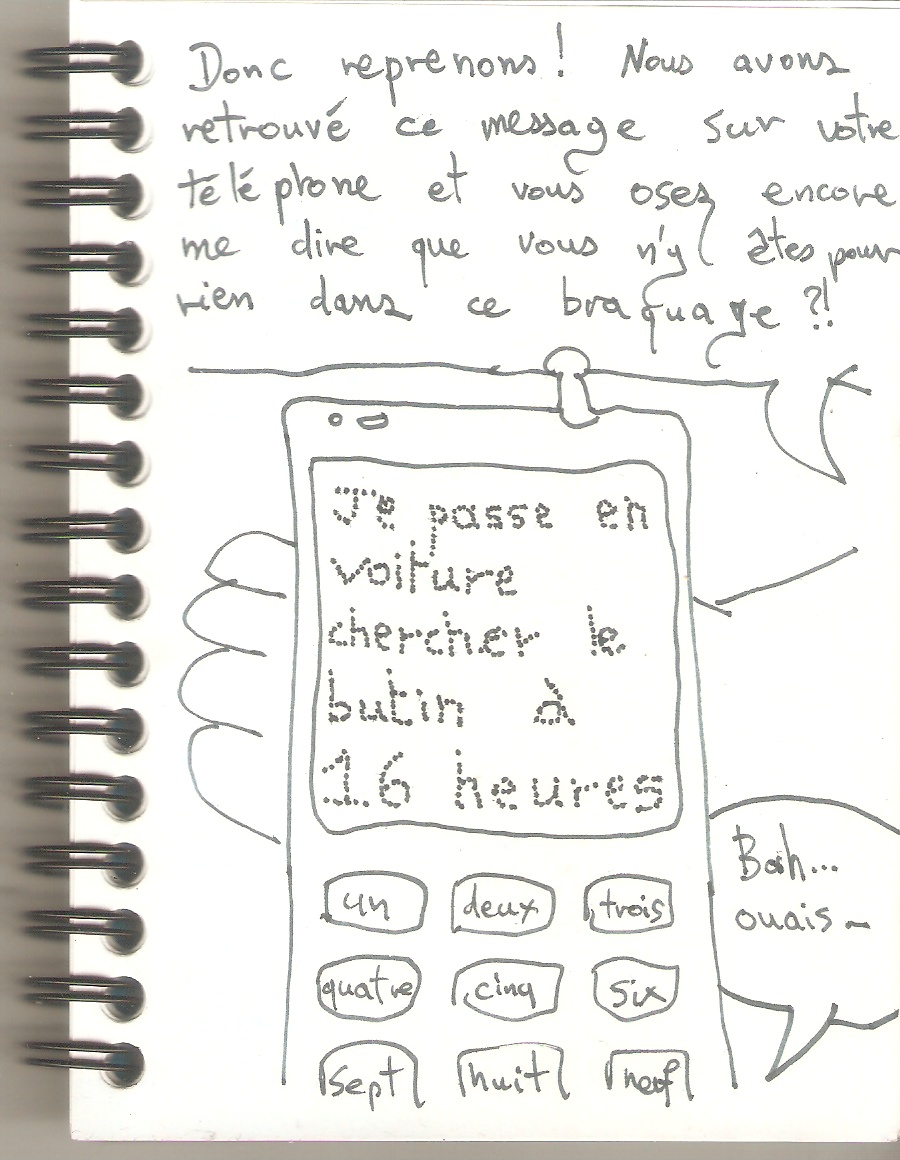 Donc reprenons! Nous avons
retrouvé ce message sur votre
téléphone et vous osez encore
me dire que vous n'y êtes pour
rien dans ce braquage ?!
Je passe en
voiture
chercher le
butin à
16 heures
Bah...
ouais...
un deux trois
quatre cinq six
sept huit neuf